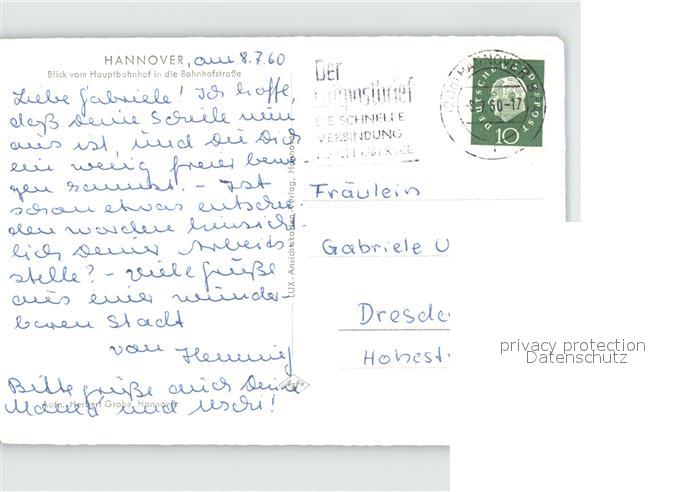 HANNOVER, am 8.7.60
Blick vom Hauptbahnhof in die Bahnhofstraße
Liebe Gabriele! Ich hoffe,
daß Deine Schule nun
aus ist, und Du Dich
ein wenig freier bewe-
gen kannst. - Ist
schon etwas entschie-
den worden hinsicht-
lich Deiner Arbeits
stelle? - Viele Grüße
aus einer wunder-
baren Stadt
von Henning
Bitte grüße auch Deine
Mama und Uschi!
Aufn. Herbert Grobe, Hannover
LUX-Ansichtskarten-Verlag, Hannover
Der
Luftpostbrief
DIE SCHNELLE
VERBINDUNG
NACH ÜBERSEE
HANNOVER
-8.7.60-17
DEUTSCHE BUNDESPOST
10
Fräulein
Gabriele U
Dresde
Hohest
privacy protection
Datenschutz